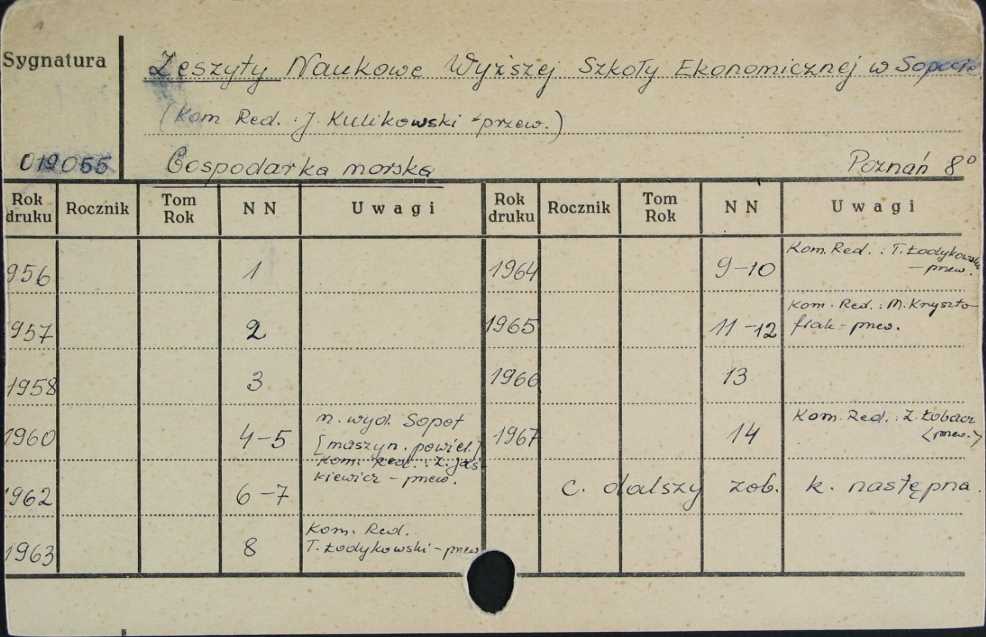 Sygnatura
Zeszyty Naukowe Wyższej Szkoły Ekonomicznej w Sopocie
(Kom Red. : J. Kulikowski - przew.)
019055 Gospodarka morska Poznań 8°
Rok druku Rocznik Tom Rok N N Uwagi Rok druku Rocznik Tom Rok N N Uwagi
956 1 1964 9-10 Kom. Red. : T. Łodykowski - przew.
957 2 1965 11-12 Kom. Red. : M. Krysztofiak - przew.
1958 3 1966 13
1960 4-5 m. wyd. Sopot [maszyn. powiel.] 1967 14 Kom. Red. : Z. Łobacz (przew.)
Kom. Red. : Z. Jaśkiewicz - przew.
1962 6-7 c. dalszy zob. k. następna.
1963 8 Kom. Red. T. Łodykowski - przew